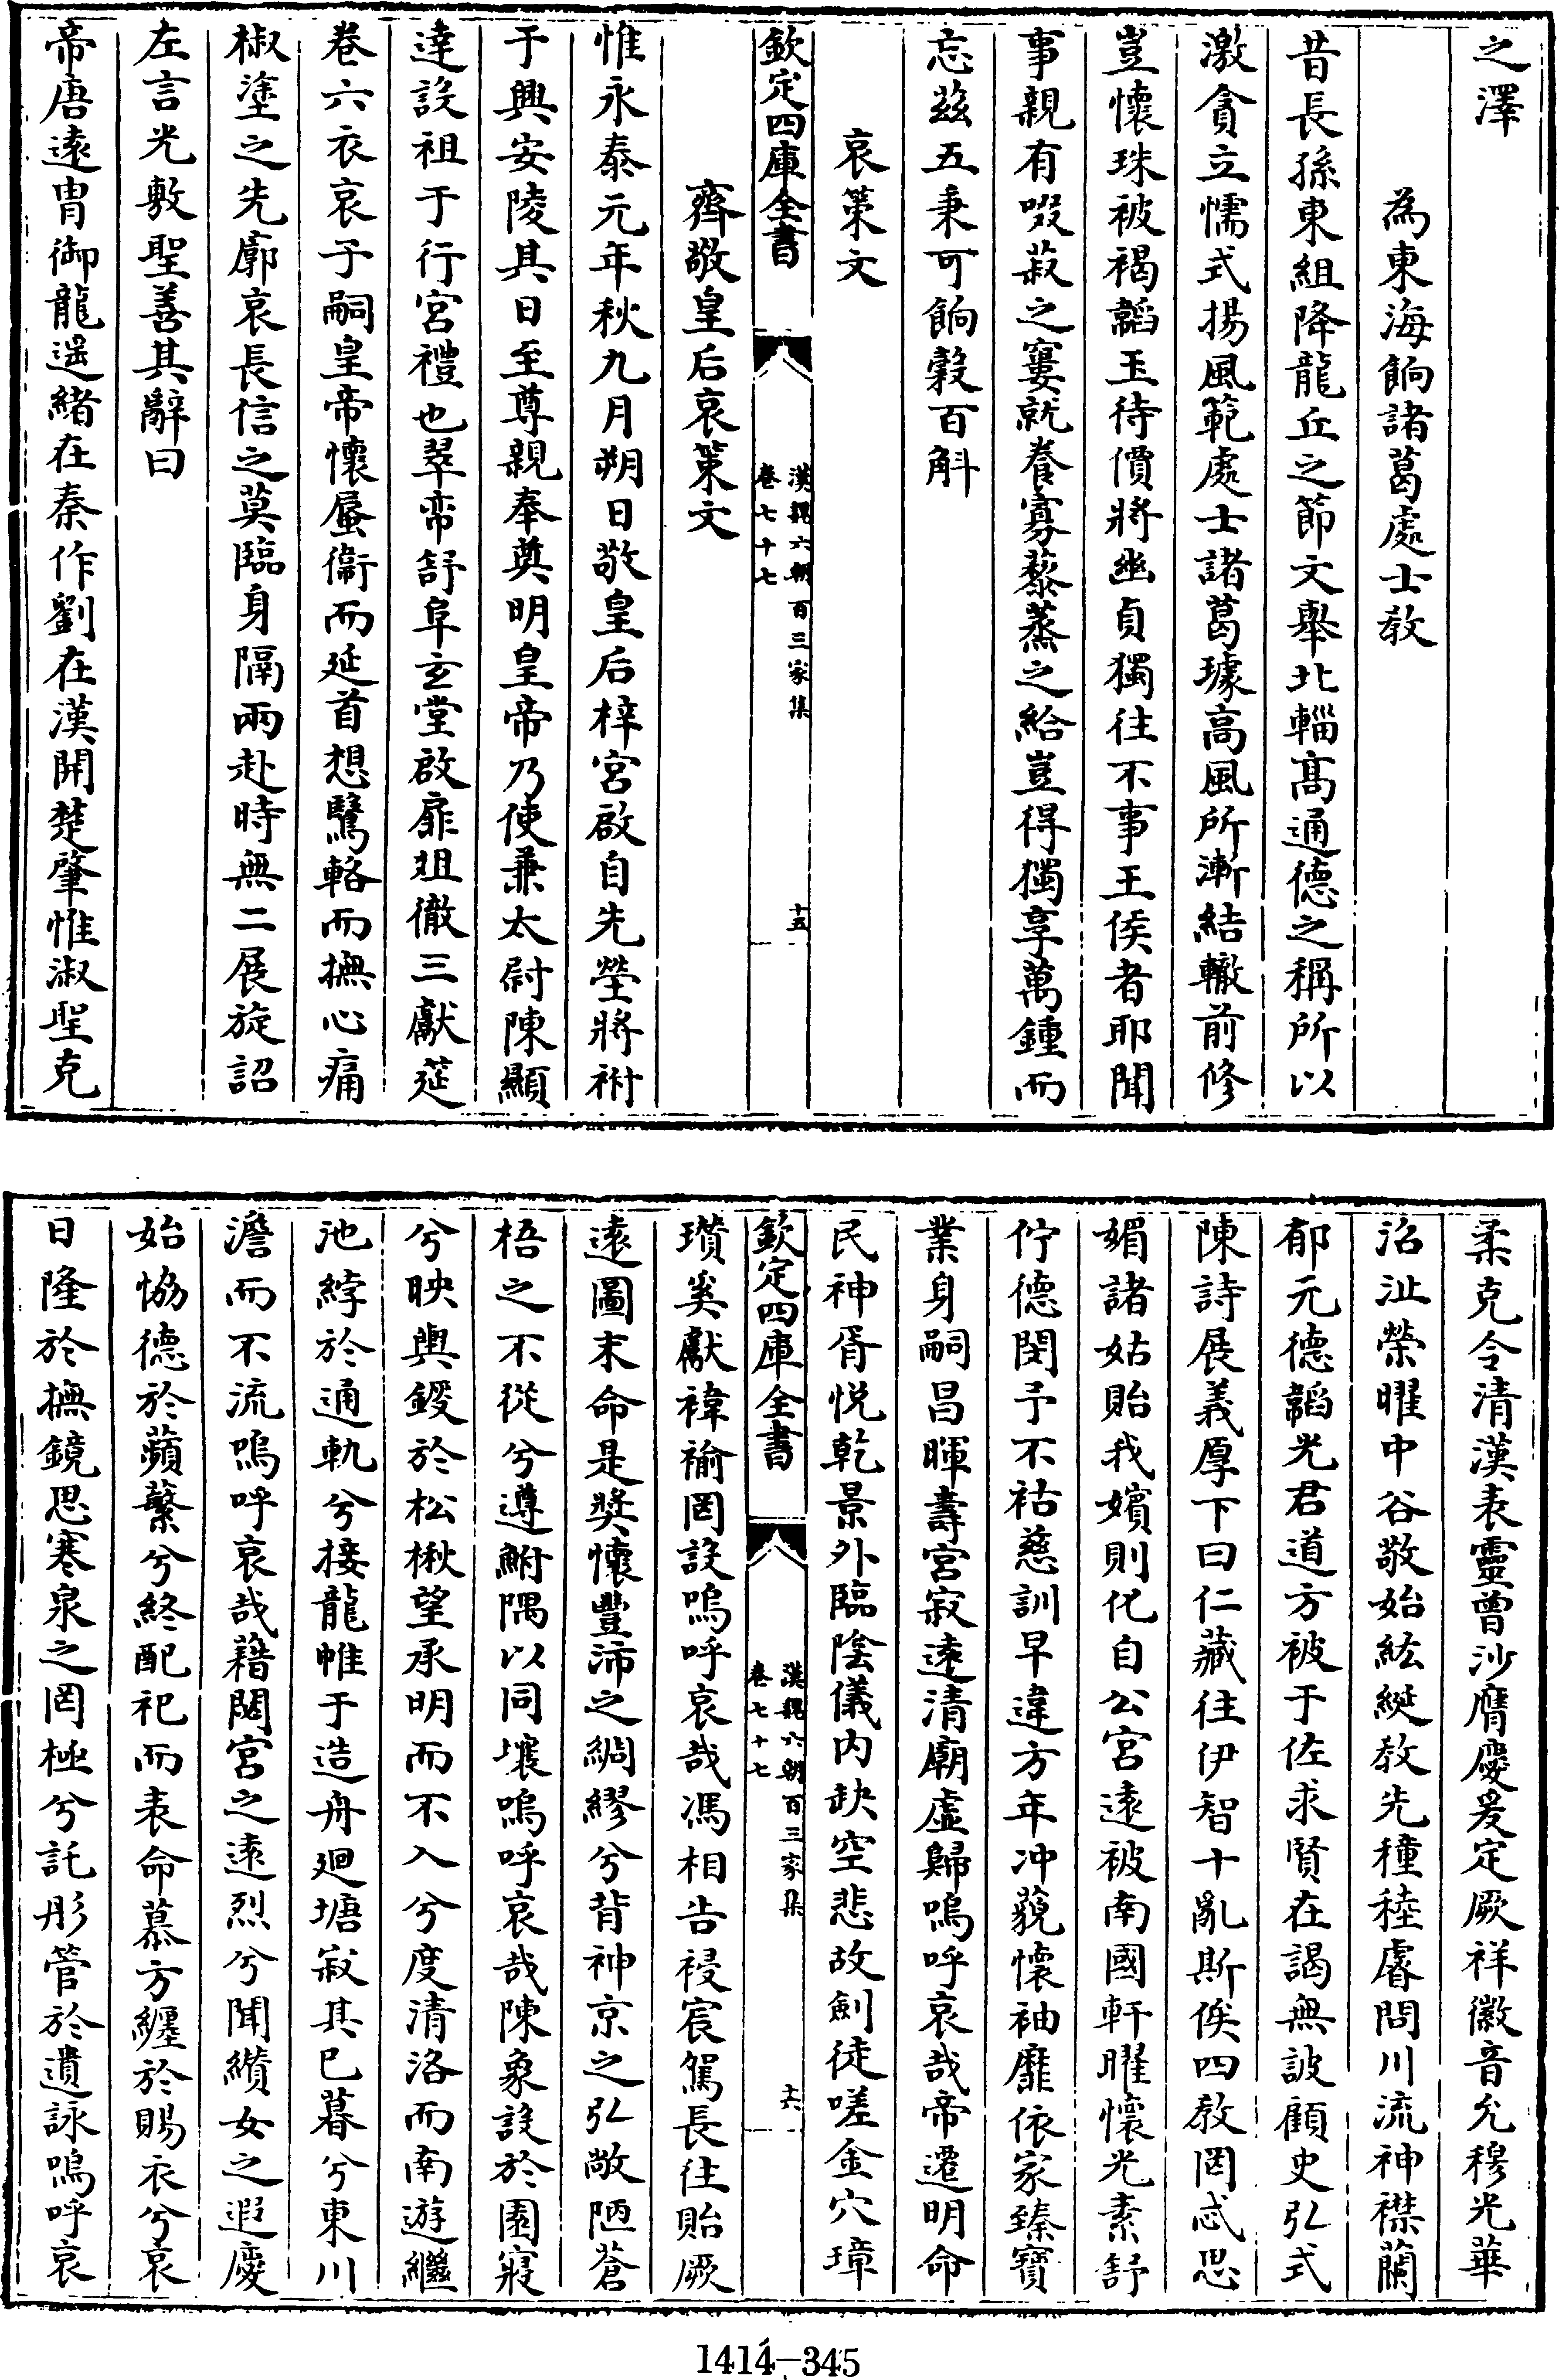 之澤
為東海餉諸葛處士教
昔長孫東組降龍丘之節文舉北輜高通德之稱所以
激貪立懦式揚風範處士諸葛璩高風所漸結轍前修
豈懷珠被褐韞玉待價將幽貞獨往不事王侯者耶聞
事親有啜菽之窶就養寡藜蒸之給豈得獨享萬鍾而
忘兹五秉可餉榖百斛
哀策文
欽定四庫全書
漢魏六朝百三家集
卷七十七
十五
齊敬皇后哀策文
惟永泰元年秋九月朔日敬皇后梓宮啟自先塋將祔
于興安陵其日至尊親奉奠明皇帝乃使兼太尉陳顯
達設祖于行宮禮也翠帟舒阜玄堂啟扉俎徹三獻筵
卷六衣哀子嗣皇帝懷蜃衞而延首想鷖輅而撫心痛
椒塗之先廓哀長信之莫臨身隔兩赴時無二展旋詔
左言光敷聖善其辭曰
帝唐遠胄御龍遥緒在秦作劉在漢開楚肇惟淑聖克
柔克令清漢表靈曾沙膺慶爰定厥祥徽音允穆光華
沼沚榮曜中谷敬始紘綖教先穜稑睿問川流神襟蘭
郁元德韜光君道方被于佐求賢在謁無詖顧史弘式
陳詩展義厚下曰仁藏往伊智十亂斯俟四教罔忒思
媚諸姑貽我嬪則化自公宮遠被南國軒曜懷光素舒
佇德閔予不祜慈訓早違方年冲藐懷袖靡依家臻寶
業身嗣昌暉壽宮寂遠清廟虛歸嗚呼哀哉帝遷明命
民神胥悦乾景外臨陰儀内缺空悲故劍徒嗟金穴璋
欽定四庫全書
漢魏六朝百三家集
卷七十七
十六
瓚奚獻褘褕罔設嗚呼哀哉馮相告祲宸駕長往貽厥
遠圖末命是奬懷豐沛之綢繆兮背神京之弘敞陋蒼
梧之不從兮遵鮒隅以同壤嗚呼哀哉陳象設於園寢
兮映輿鍐於松楸望承明而不入兮度清洛而南遊繼
池綍於通軌兮接龍帷于造舟廻塘寂其已暮兮東川
澹而不流嗚呼哀哉籍閟宮之遠烈兮聞纘女之遐慶
始恊德於蘋蘩兮終配祀而表命慕方纏於賜衣兮哀
日隆於撫鏡思寒泉之罔極兮託彤管於遺詠嗚呼哀
1414-345